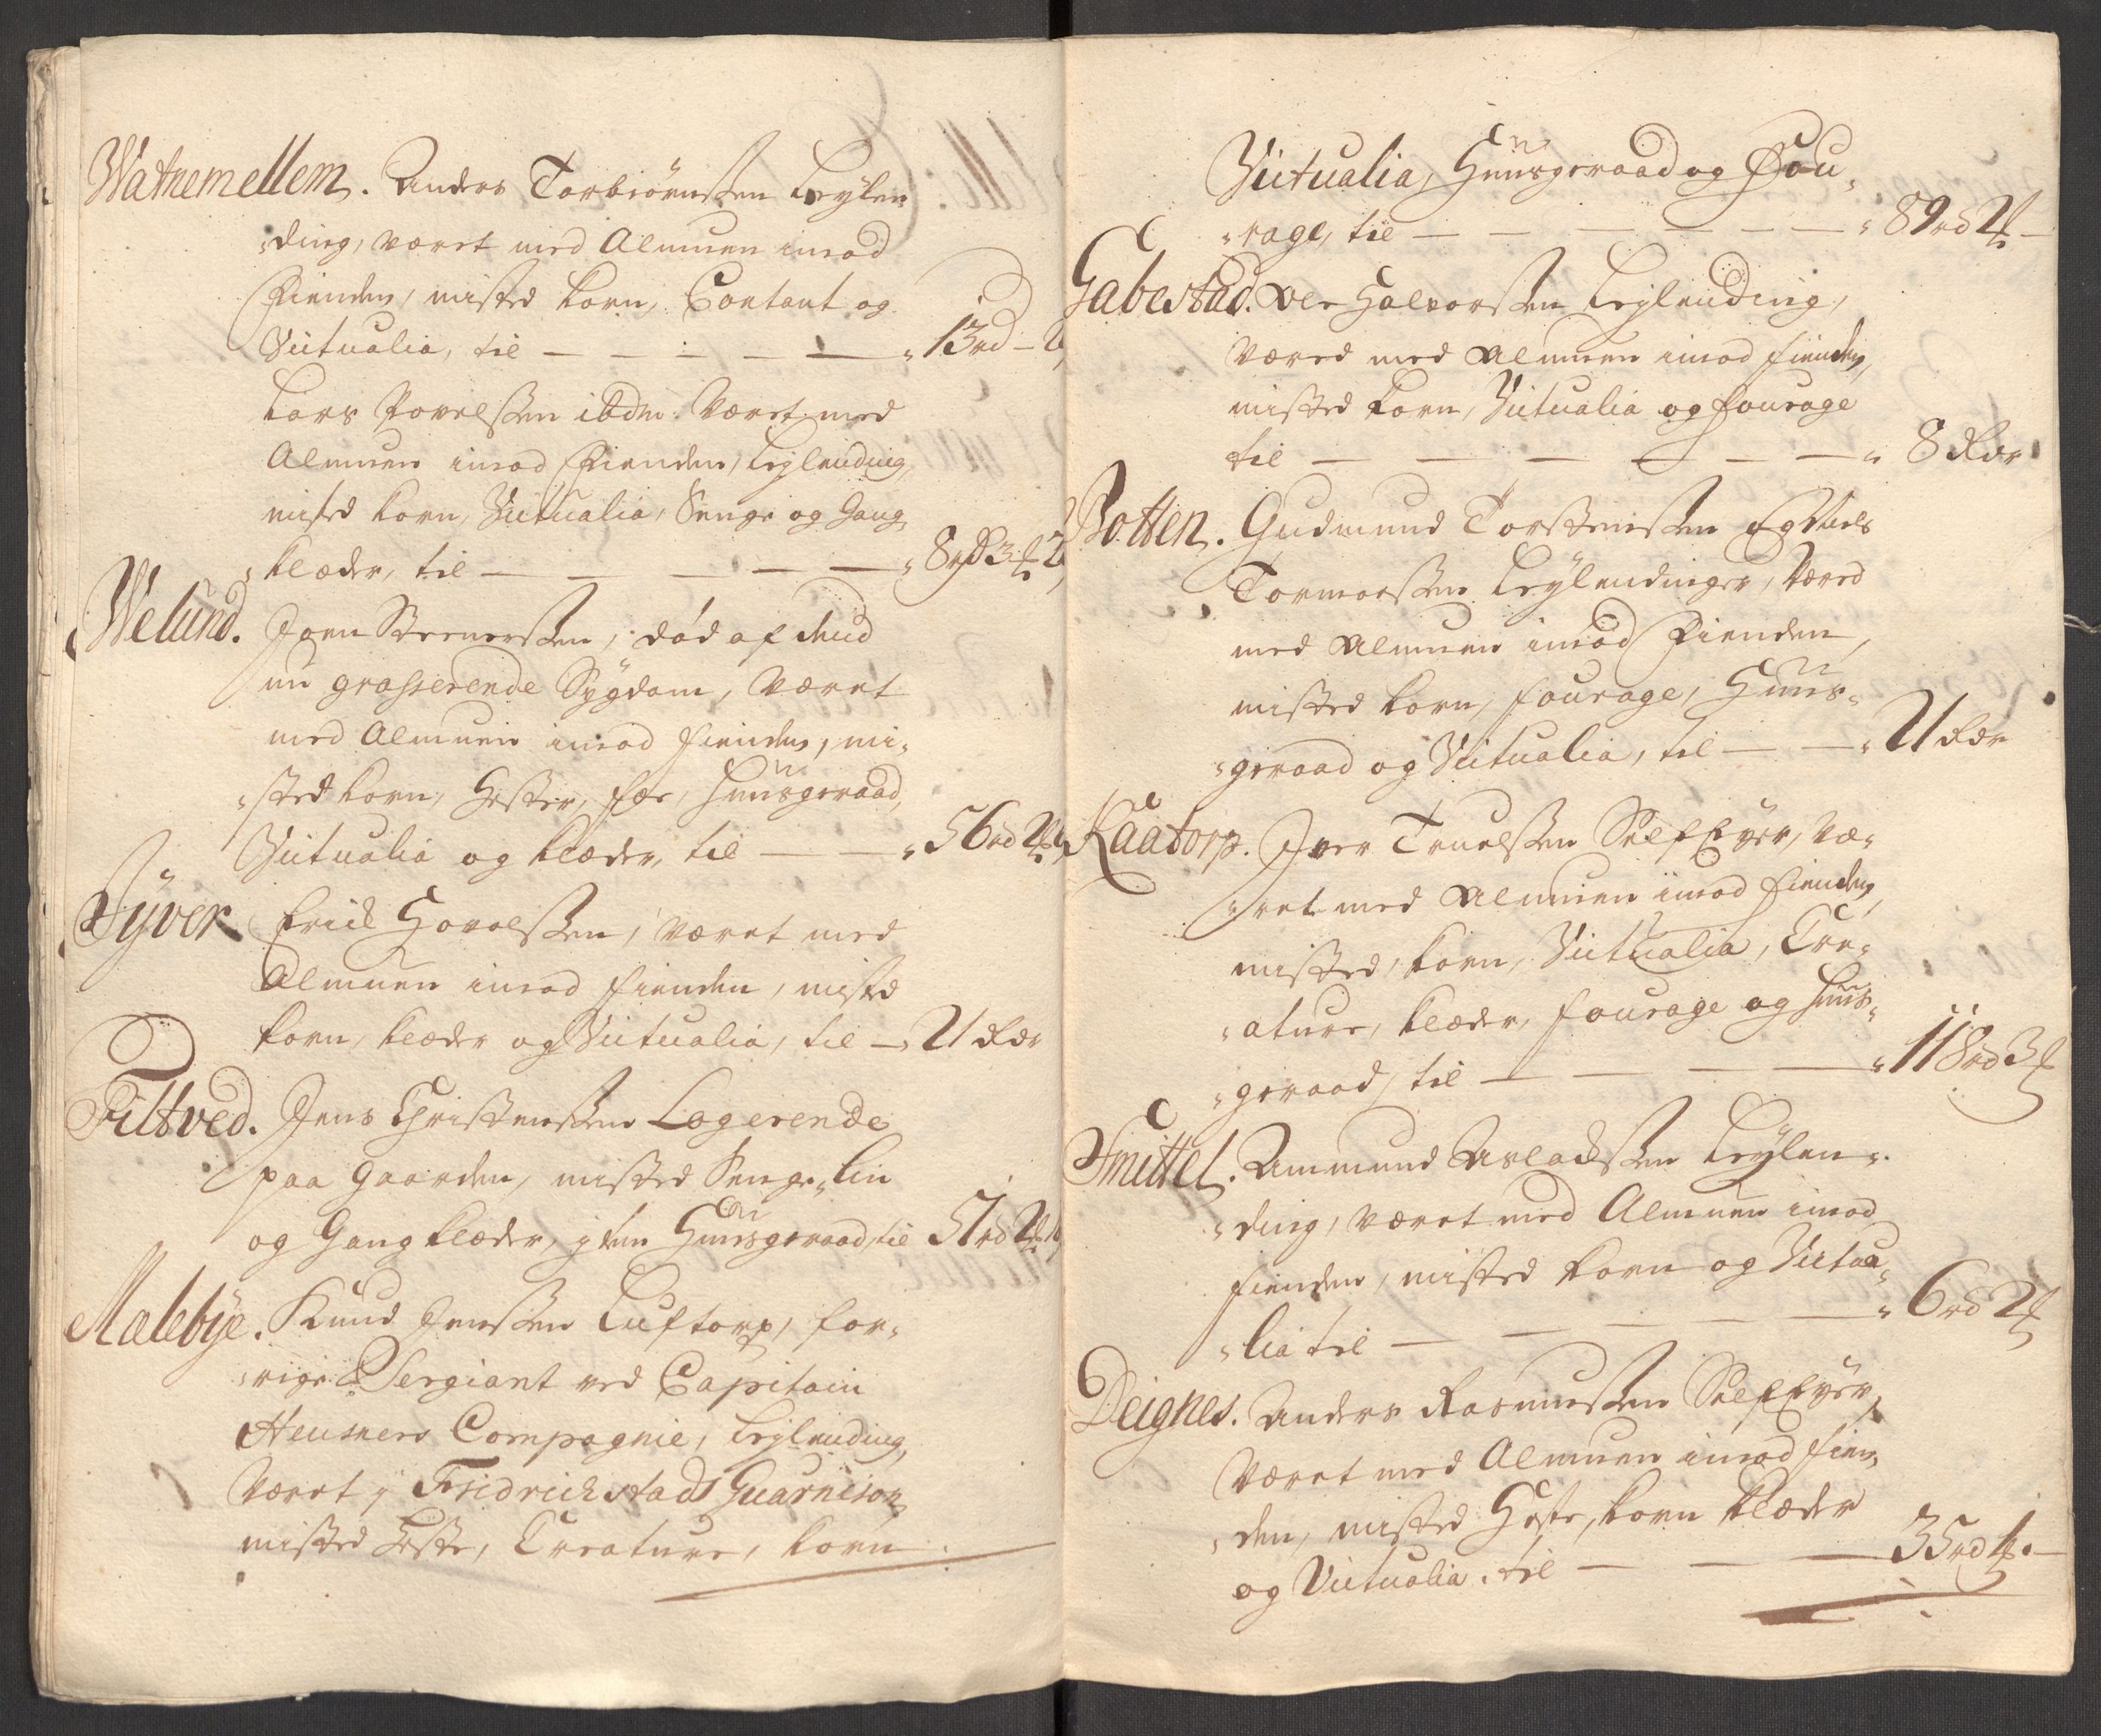 Watnemellem. Anders Torbiörnssen Leÿlen
„ding, været med Almuen imod
Fienden, misted korn, Contant og
Victualia, til — — — — — „13rd –
Lars Povelssen ibdm. Været med
Almuen imod Fienden, Leÿlending,
misted korn, Victualia, Senge og Gang
„klæder, til — — — — — „8rd 3
Welund. Joen Steenerssen, död af dend
nu grasserende Sÿgdom, Været
med Almuen imod fienden, mi„
„sted korn, Hester, fæe, Huusgeraad,
Victualia og klæder, til — — „56rd 2
Tÿver Erick Hovelssen, været med
Almuen imod fienden, misted
korn, klæder og Victualia, til — 21 Rdr
Filtved. Jens Christenssen Logerende
paa gaarden, misted Senge„ lin
og Gangklæder, item Huusgeraad, til 57rd 2
Malebÿe. Knud Jenssen Luftorp, for„
„rige Sergiant ved Capitain
Heusners Compagnie, Leÿlending,
Været i Fridrichstads Guarnison,
misted Heste, Creature, korn
Victualia, Huusgeraad og Fou„
„rage, til — — — — — — — „89rd 2
Gabestad. Ole Halvorssen Leÿlending,
Været med Almuen imod fienden,
misted korn, Victualia og fourage
til — — — — — — „ 8 Rdr
Botten. Gudmund Torstenssen og Niels
Tormoessen Leÿlendinger, Været
med Almuen imod Fienden,
misted korn, fourage, Huus„
„geraad og Victualia, til — — „21 Rdr
Kaatorp. Iver Truelssen SelfEÿer, væ„
„ret med Almuen imod fienden,
misted, korn, Victualia, Cre„
„ature, klæder, fourage og Huus„
„geraad, til — — — — „118rd 3
Smittel. Ammund Aslachssen Leÿlen„
„ding, Været med Almuen imod
fienden, misted korn og Victua„
„lia til — — — — — „6rd 2
Deignes. Anders Rasmussen SelfEÿer,
Været med Almuen imod fien„
„den, misted Heste, korn klæder
og Victualia. til — — — 35rd 1. —